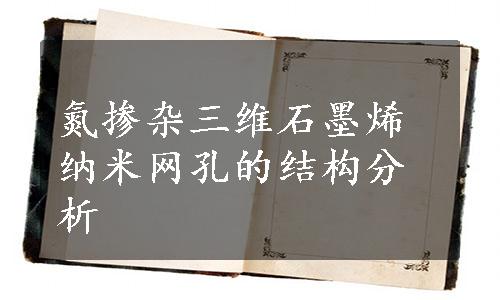 氮掺杂三维石墨烯
纳米网孔的结构分
析